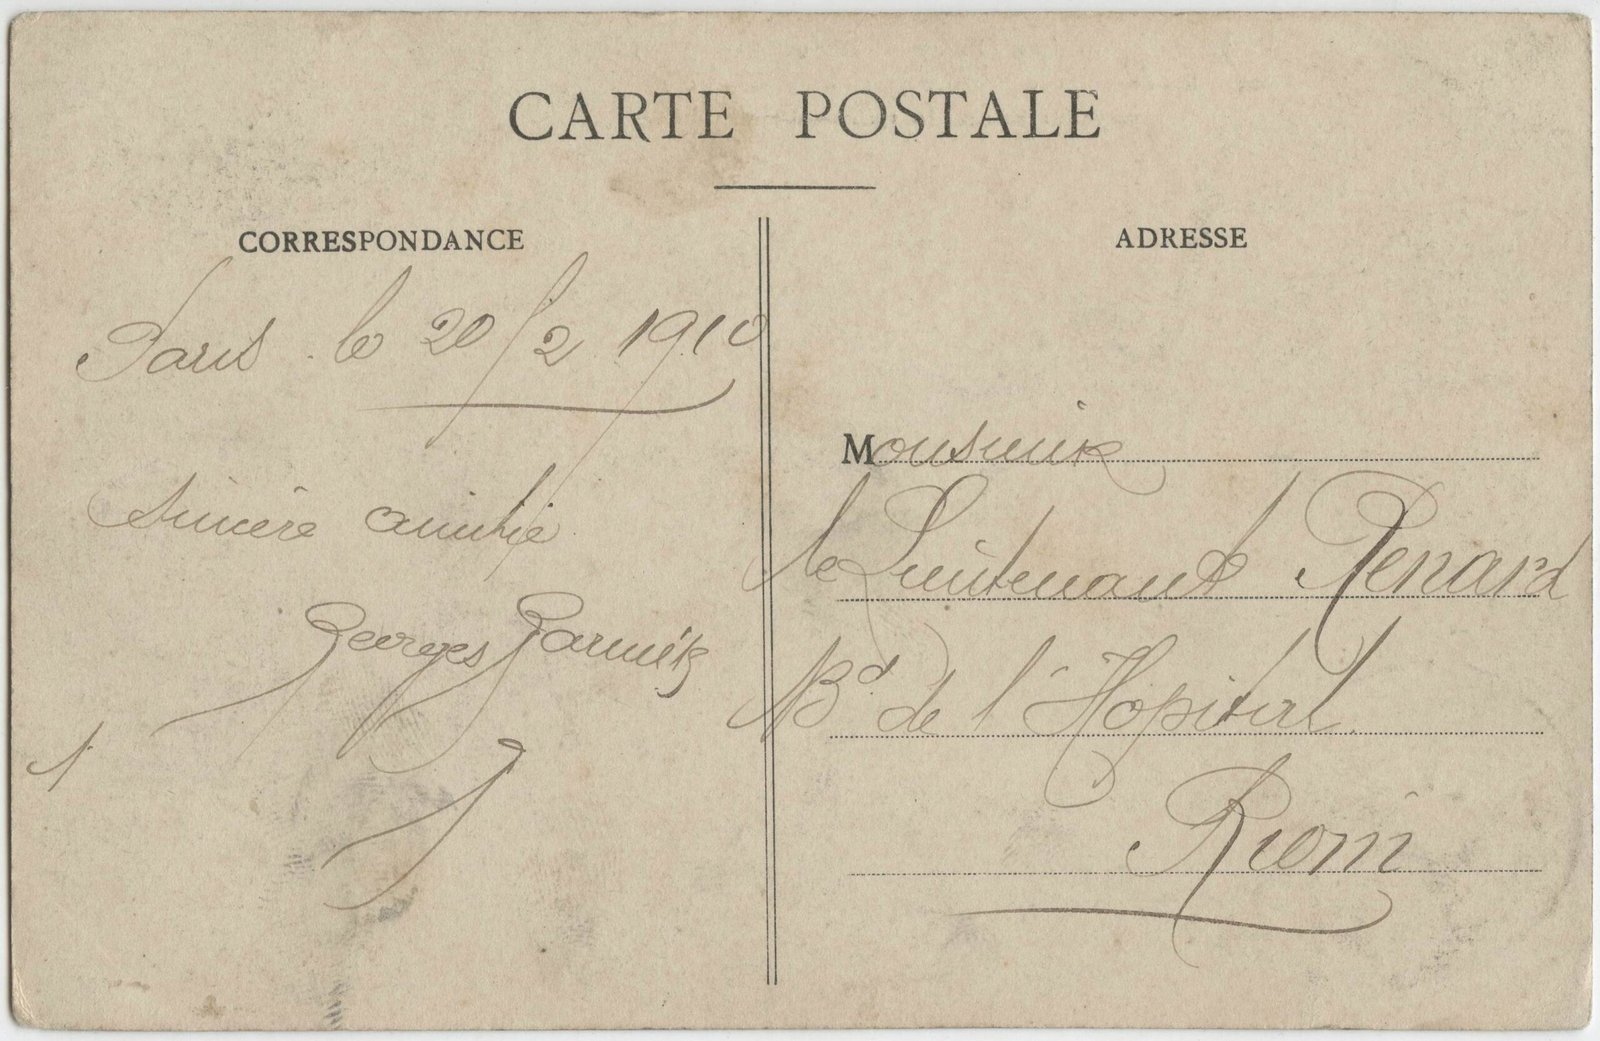 CARTE POSTALE
CORRESPONDANCE
Paris le 20/2 1910
Sincère amitié
Georges
ADRESSE
Monsieur
le Lieutenant Renard
Bd de l'Hopital
Riom